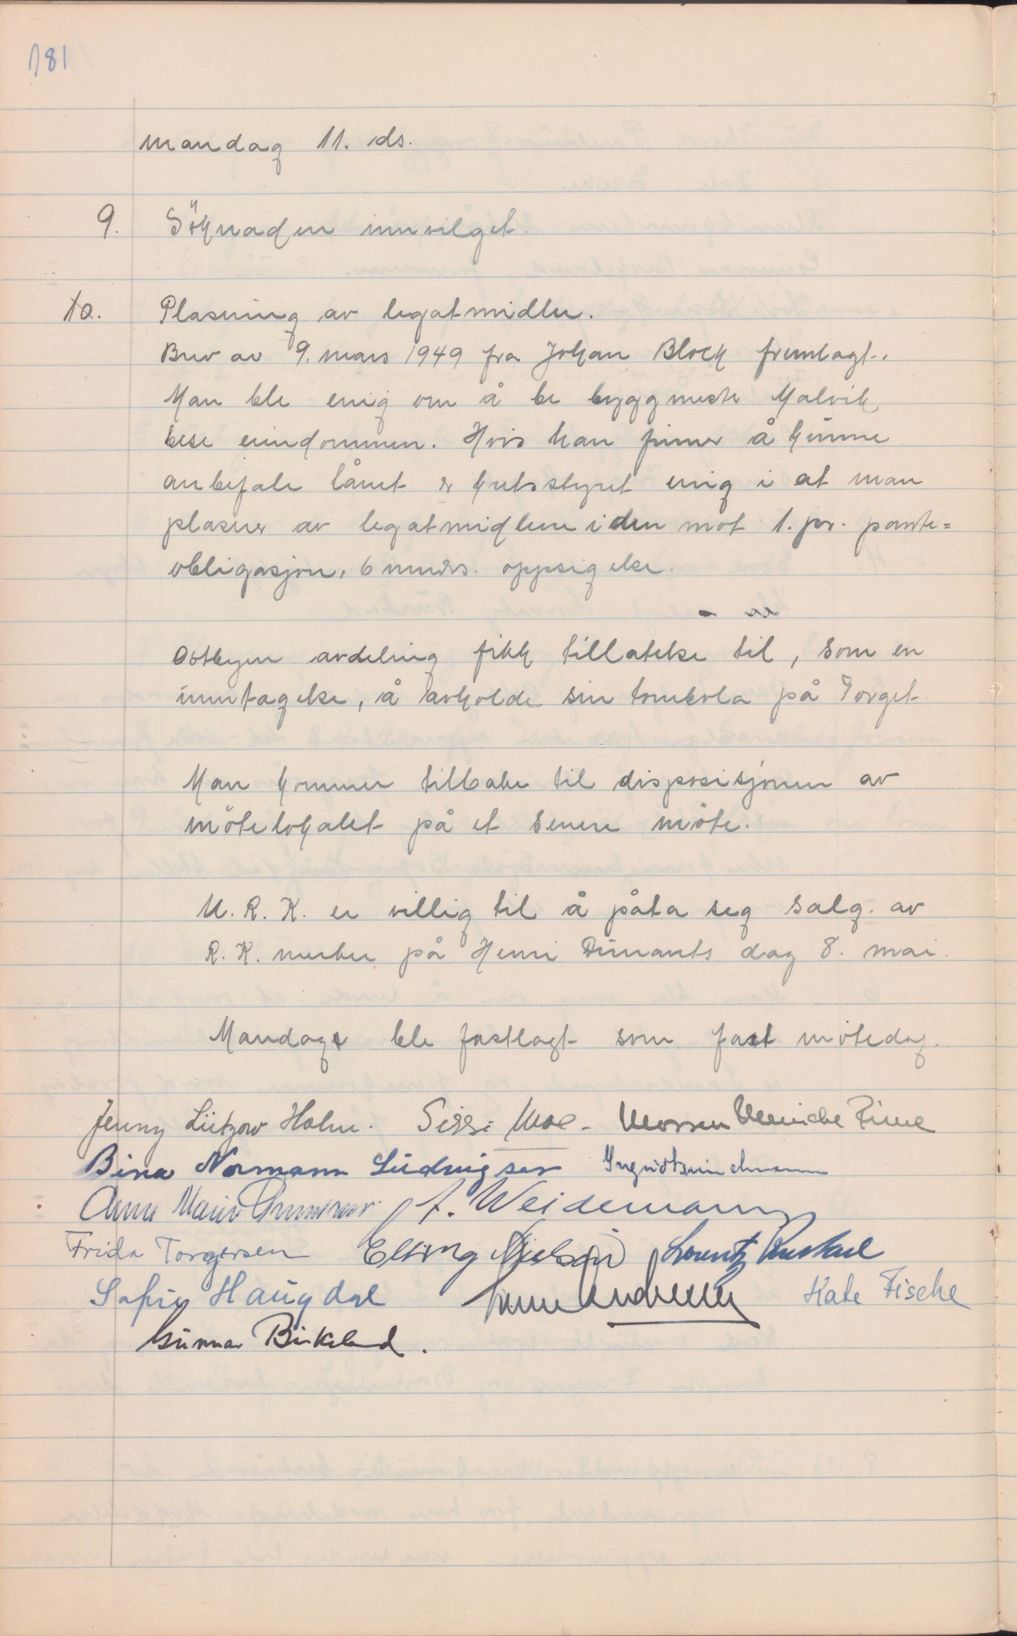 181
mandag 11. ds.
9. Söknaden innvilget.
10. Plasering av legatmidler.
Brev av 9. mars 1949 fra Johan Block fremlagt.
Man ble enig om å be byggmester Malvik
bese eiendommen. Hvis han finner å kunne
anbefale lånet er kretsstyret enig i at man
plaserer av legatmidlene i den mot 1. pr. pante=
obligasjon, 6 mndrs. oppsigelse.
Ostbyen avdeling fikk tillatelse til, som en
unntagelse, å avholde sin tombola på Torget
Man kommer tilbake til disposisjonen av
mötelokalet på et senere möte.
U. R. K. er villig til å påta seg salg av
R. K. merker på Henri Dunants dag 8. mai.
Mandag ble fastlagt som fast mötedag.
Jenny Lützow Holm. Sissi Moe - Mossen Weinche
Bina Normann Ludvigsen
Anne Marie A. Weidemann
Frida Torgersen Elling Nielsen Lorentz
Sofie Haugdal Kate Fische
Gunnar Birkeland.